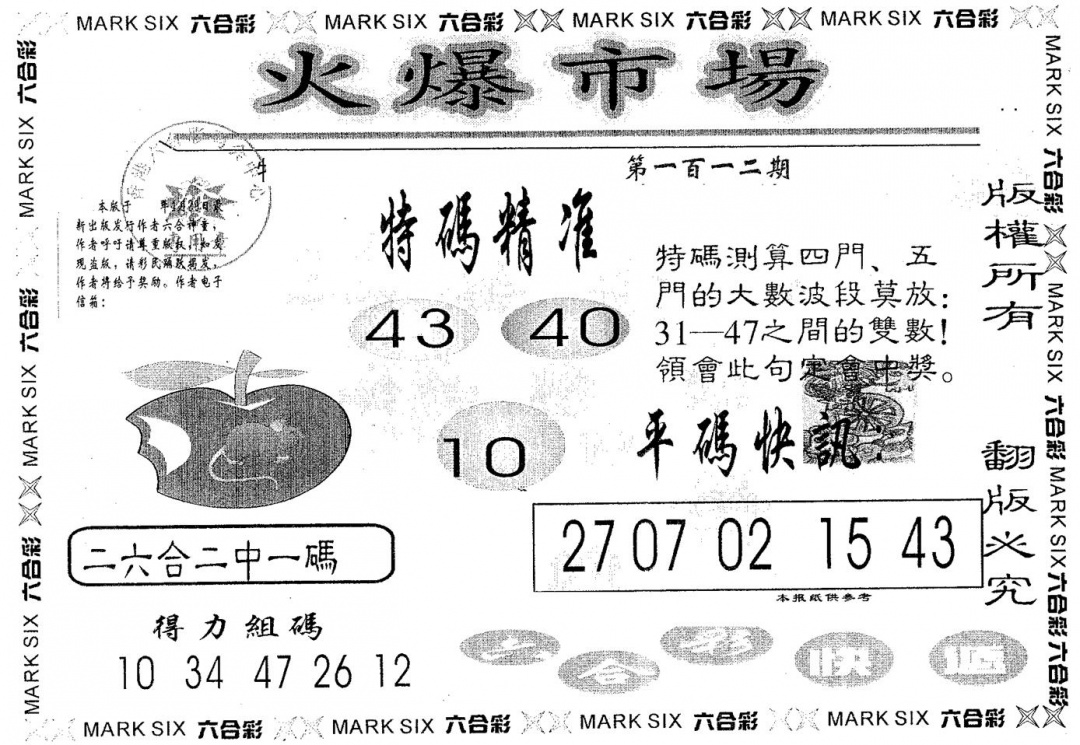 MARK SIX 六合彩 MARK SIX 六合彩 MARK SIX 六合彩 MARK SIX 六合彩
火爆市場
第一百一十二期
特碼精准
本版于 年1月21日最
新出版发行作者六合神童，
作者呼吁请尊重版权，如发
现盗版，请彩民踊跃揭发，
作者将给予奖励。作者电子
信箱：
特碼測算四門、五
門的大數波段莫放：
31—47之間的雙數！
領會此句定會中獎。
43 40
10
平碼快訊：
27 07 02 15 43
本报纸供参考
二六合二中一碼
得力組碼
10 34 47 26 12
六合彩快遞
版權所有
翻版必究
MARK SIX 六合彩 MARK SIX 六合彩 MARK SIX 六合彩
MARK SIX 六合彩 MARK SIX 六合彩 MARK SIX 六合彩 六合彩
MARK SIX 六合彩 MARK SIX 六合彩 MARK SIX 六合彩 MARK SIX 六合彩